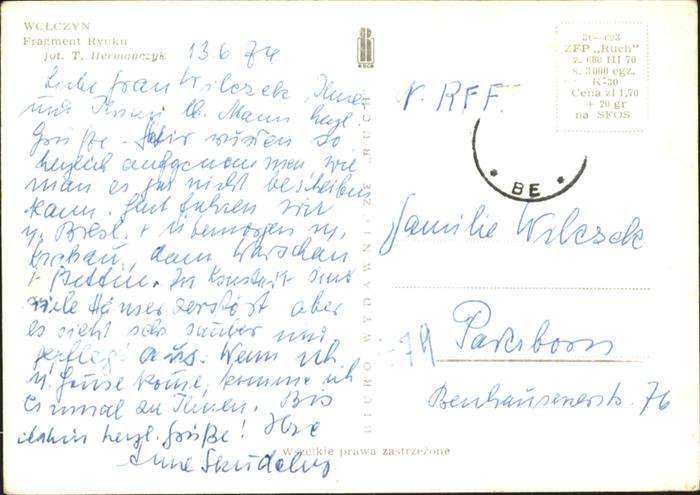 WOŁCZYN
Fragment Rynku
fot. T. Hermańczyk
13.6.74
Liebe Frau Wilczek, Ihnen
und Ihrem lb. Mann herzl.
Grüße. Wir wurden so
herzlich aufgenommen, wie
man es gar nicht beschreiben
kann. fahren wir
n. Bresl. + Übermorgen n.
Krakau, dann Warschau
+ Stettin. In sind
viele Häuser zerstört aber
es sieht sehr sauber und
gepflegt aus. Wenn ich
n. Hause komme, komme ich
einmal zu Ihnen. Bis
dahin herzl. Grüße! Ihre
Anne
RUCH
BIURO WYDAWNICZE RUCH
Wszelkie prawa zastrzeżone
ZFP „Ruch"
z. 680 III 70
s. 3000 egz.
K-30
Cena zł 1,70
+ 20 gr
na SFOS
N. RFF.
* BE *
Familie Wilczek
479
Paderborn
Benhauserstr. 76